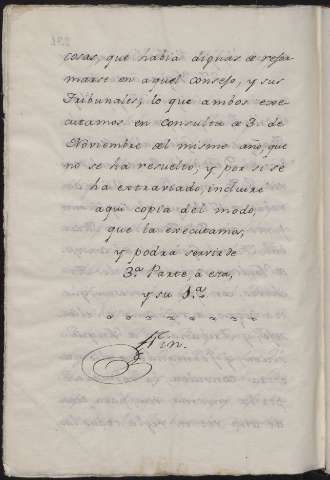 cosas, que habia dignas de refor-
marse en aquel consejo, y sus
Tribunales; lo que ambos exe-
cutamos en consulta de 3. de
Noviembre del mismo año, que
no se ha resuelto, y por si se
ha extraviado, incluire
aqui copia del modo,
que la executamos,
y podrá servir de
3.ª Parte, à esta,
y su 1.ª
Fin.